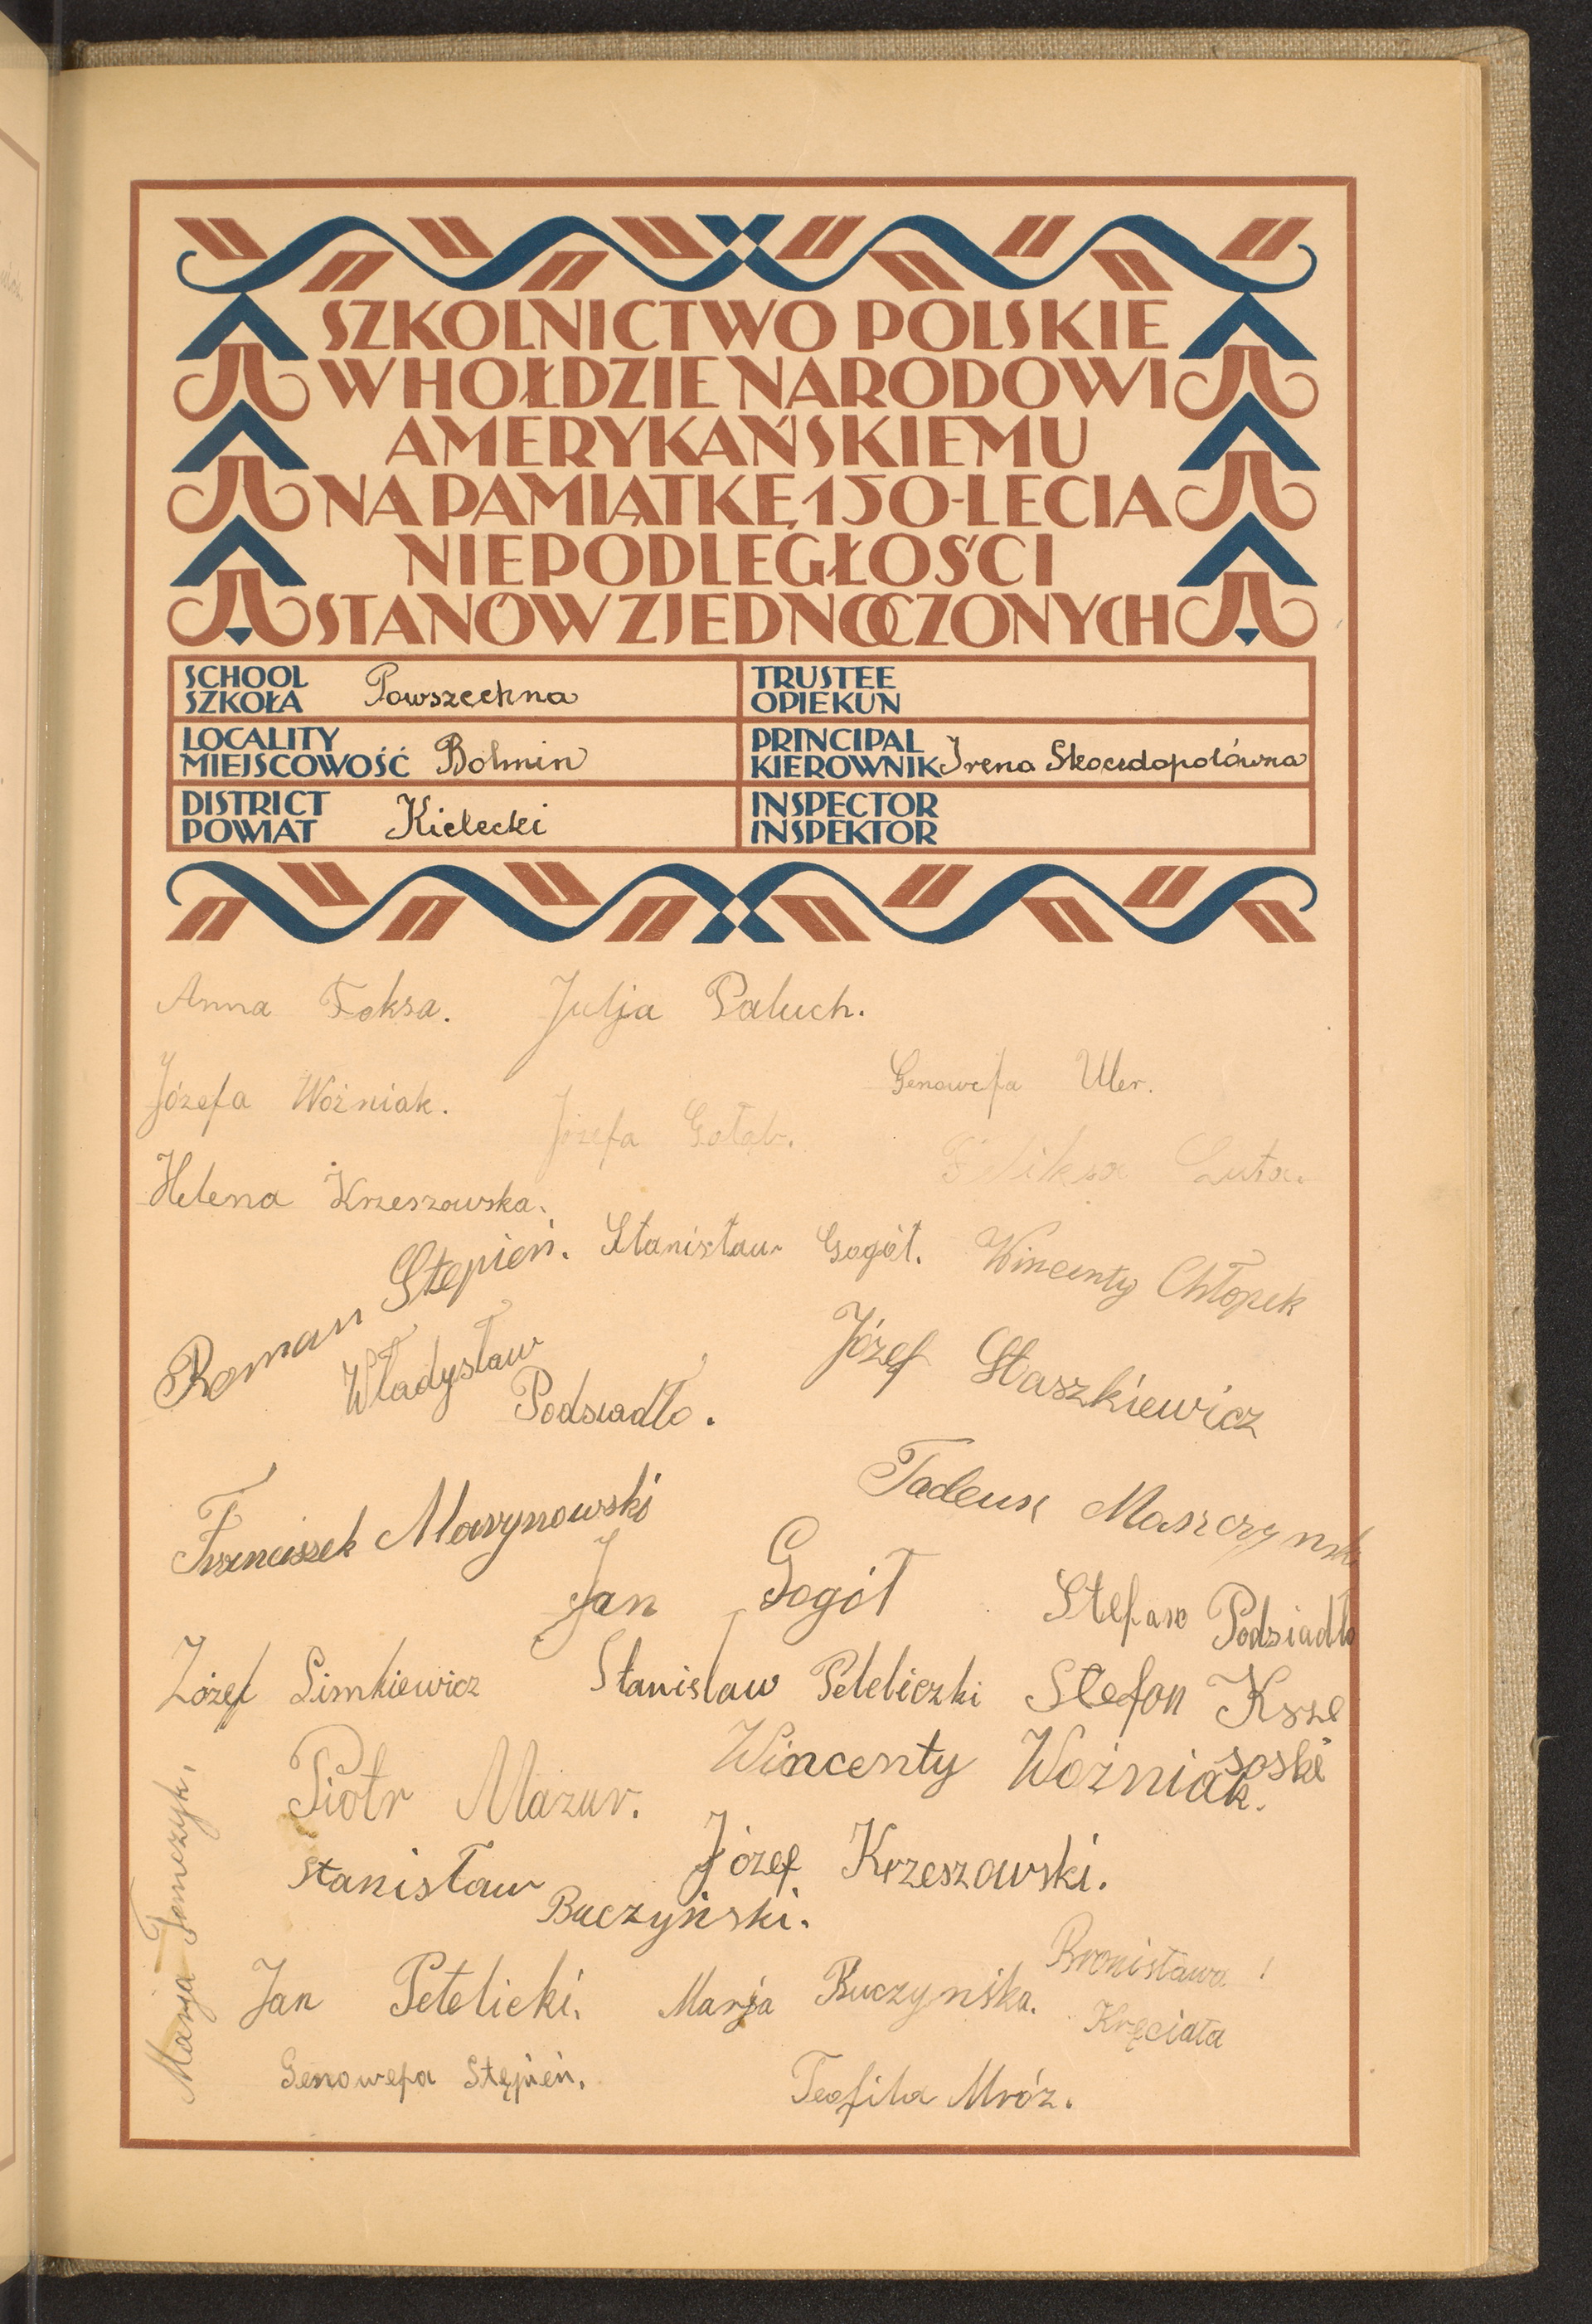 SZKOLNICTWO POLSKIE
W HOŁDZIE NARODOWI
AMERYKAŃSKIEMU
NA PAMIĄTKĘ 150-LECIA
NIEPODLEGŁOŚCI
STANÓW ZJEDNOCZONYCH
SCHOOL
SZKOŁA Powszechna
TRUSTEE
OPIEKUN
LOCALITY
MIEJSCOWOŚĆ Bolmin
PRINCIPAL
KIEROWNIK Irena Skoczdopolówna
DISTRICT
POWIAT Kielecki
INSPECTOR
INSPEKTOR
Anna Foksa. Julja Paluch.
Genowefa Uler.
Józefa Woźniak. Józefa Gołąb.
Feliksa Luta.
Helena Krzeszowska.
Roman Stępień. Stanisław Gogół. Wincenty Chłopek
Władysław
Podsiadło.
Józef Staszkiewicz
Franciszek Marynowski
Tadeusz Maszczynski
Jan Gogół Stefan Podsiadło
Józef Simkiewicz Stanislaw Peteliczki Stefan Krze
soski
Piotr Mazur. Wincenty Woźniak.
Stanisław
Buczyński.
Józef Krzeszowski.
Marja Tomczyk.
Jan Petelicki. Marja Buczyńska. Bronisława !
Kręciała
Genowefa Stępień. Teofila Mróz.